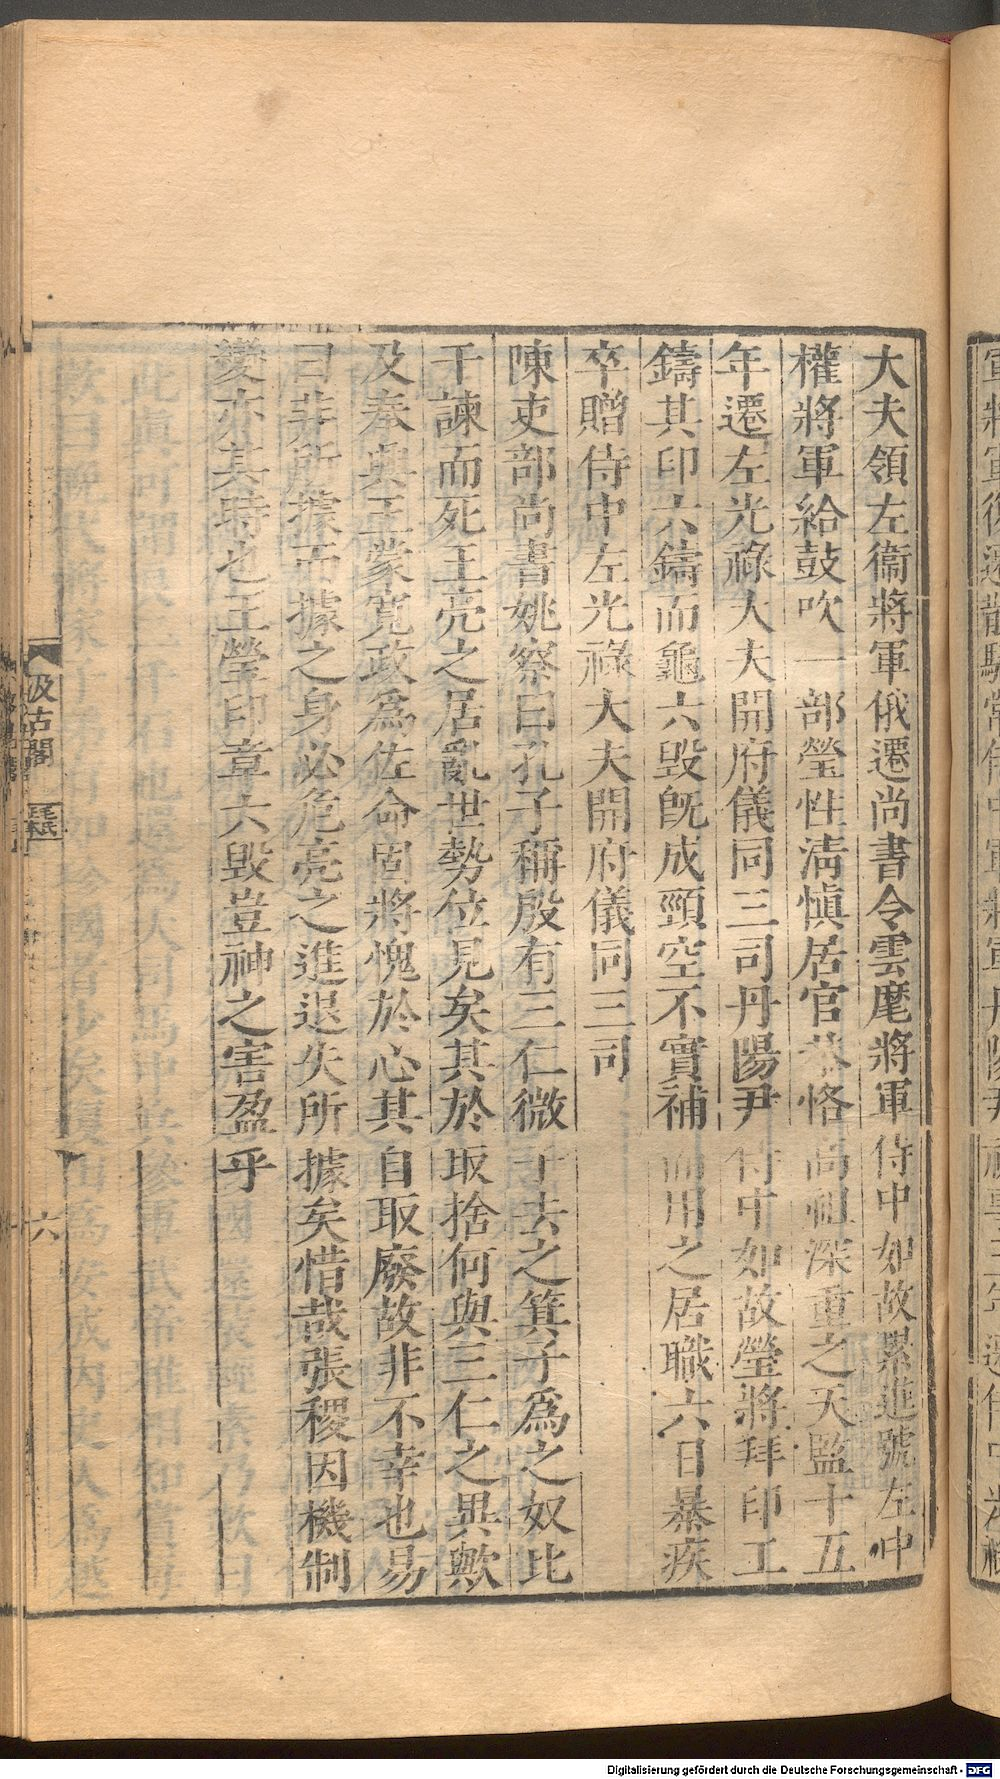 大夫領左衞將軍俄遷尚書令雲麾將軍侍中如故累進號左中
權將軍給鼓吹一部瑩性淸愼居官恭恪高祖深重之天監十五
年遷左光祿大夫開府儀同三司丹陽尹侍中如故瑩將拜印工
鑄其印六鑄而龜六毀旣成頸空不實補而用之居職六日暴疾
卒贈侍中左光祿大夫開府儀同三司
陳吏部尚書姚察曰孔子稱殷有三仁微子去之箕子爲之奴比
干諫而死王亮之居亂世勢位見矣其於取捨何與三仁之異歟
及奉興王蒙寬政爲佐命固將愧於心其自取廢故非不幸也易
曰非所據而據之身必危亮之進退失所據矣惜哉張稷因機制
變亦其時也王瑩印章六毀豈神之害盈乎
汲古閣
六
Digitalisierung gefördert durch die Deutsche Forschungsgemeinschaft - DFG